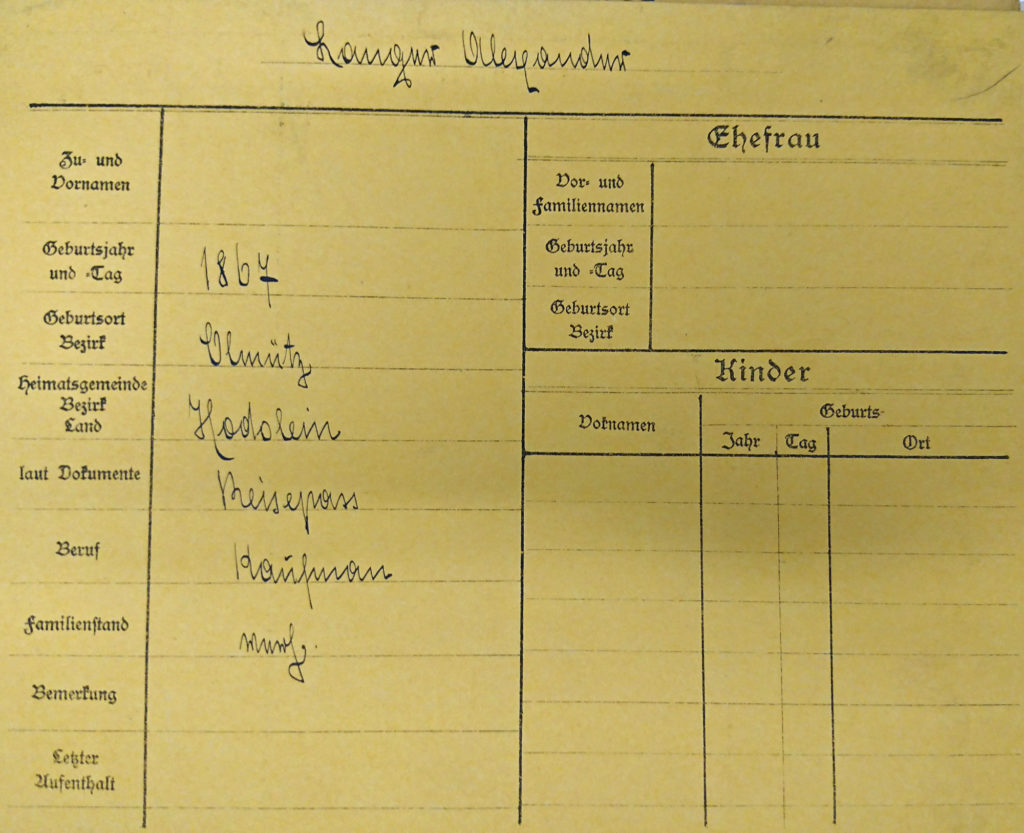 Langer Alexander
Zu- und
Vornamen
Geburtsjahr
und -Tag
1867
Geburtsort
Bezirk
Olmütz
Heimatsgemeinde
Bezirk
Land
Hodolein
laut Dokumente
Reisepass
Beruf
Kaufman
Familienstand
verh.
Bemerkung
Letzter
Aufenthalt
Ehefrau
Vor- und
Familiennamen
Geburtsjahr
und -Tag
Geburtsort
Bezirk
Kinder
Vornamen
Geburts-
Jahr
Tag
Ort